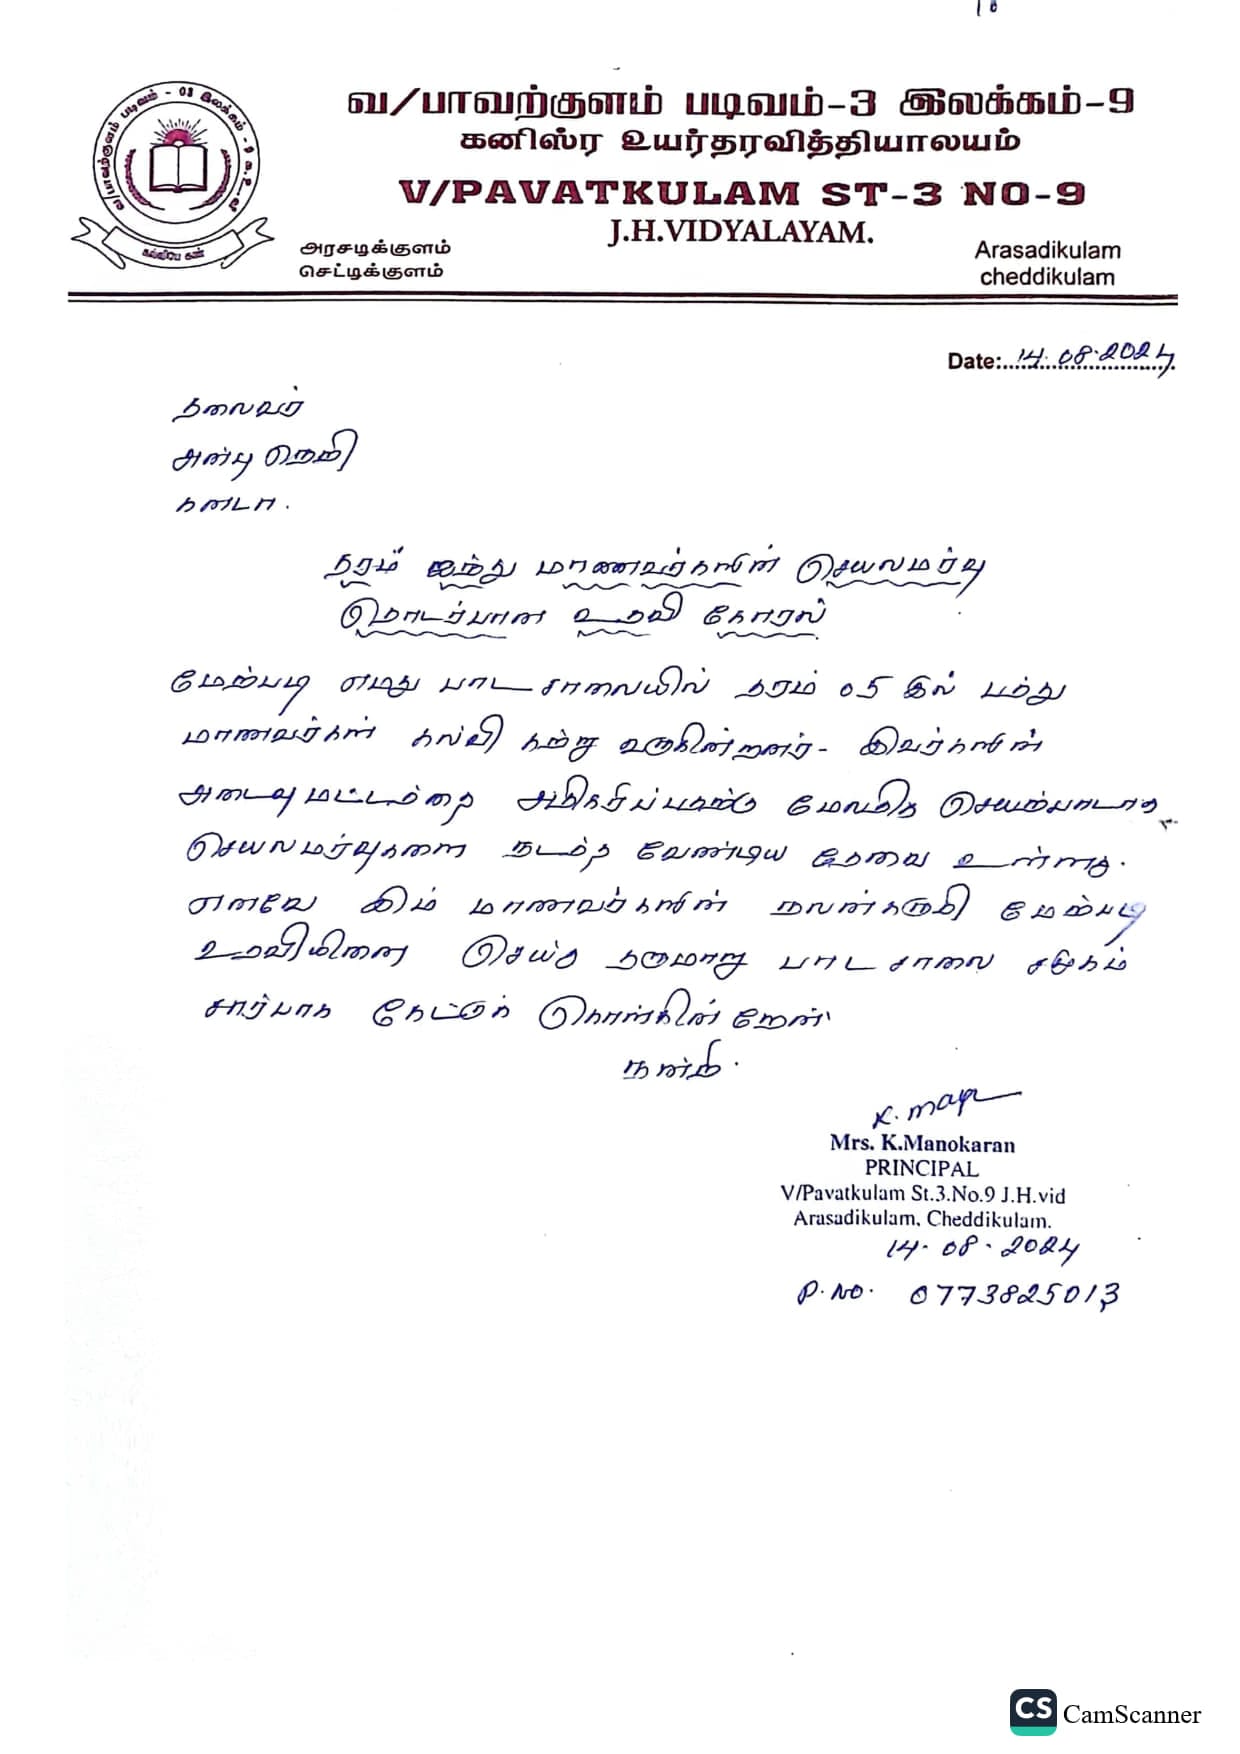 வ/பாவற்குளம் படிவம்-3 இலக்கம்-9
கனிஸ்ர உயர்தரவித்தியாலயம்
V/PAVATKULAM ST-3 NO-9
J.H.VIDYALAYAM.
அரசடிக்குளம்
செட்டிக்குளம்
Arasadikulam
cheddikulam
வ/பாவற்குளம் படிவம் - 03 இலக்கம் - 9 க.உ.வி
கல்வியே கண்
Date: 14.08.2024
தலைவர்
அன்பு நெறி
கனடா.
தரம் ஐந்து மாணவர்களின் செயலமர்வு
தொடர்பான உதவி கோரல்
மேற்படி எமது பாடசாலையில் தரம் 05 இல் பத்து
மாணவர்கள் கல்வி கற்று வருகின்றனர். இவர்களின்
அடைவுமட்டத்தை அதிகரிப்பதற்கு மேலதிக செயற்பாடாக
செயலமர்வுகளை நடாத்த வேண்டிய தேவை உள்ளது.
எனவே இம் மாணவர்களின் நலன்கருதி மேற்படி
உதவியினை செய்து தருமாறு பாடசாலை சமூகம்
சார்பாக கேட்டுக் கொள்கின்றேன்
நன்றி.
Mrs. K.Manokaran
PRINCIPAL
V/Pavatkulam St.3.No.9 J.H.vid
Arasadikulam, Cheddikulam.
14.08.2024
P.NO. 0773825013
CS CamScanner